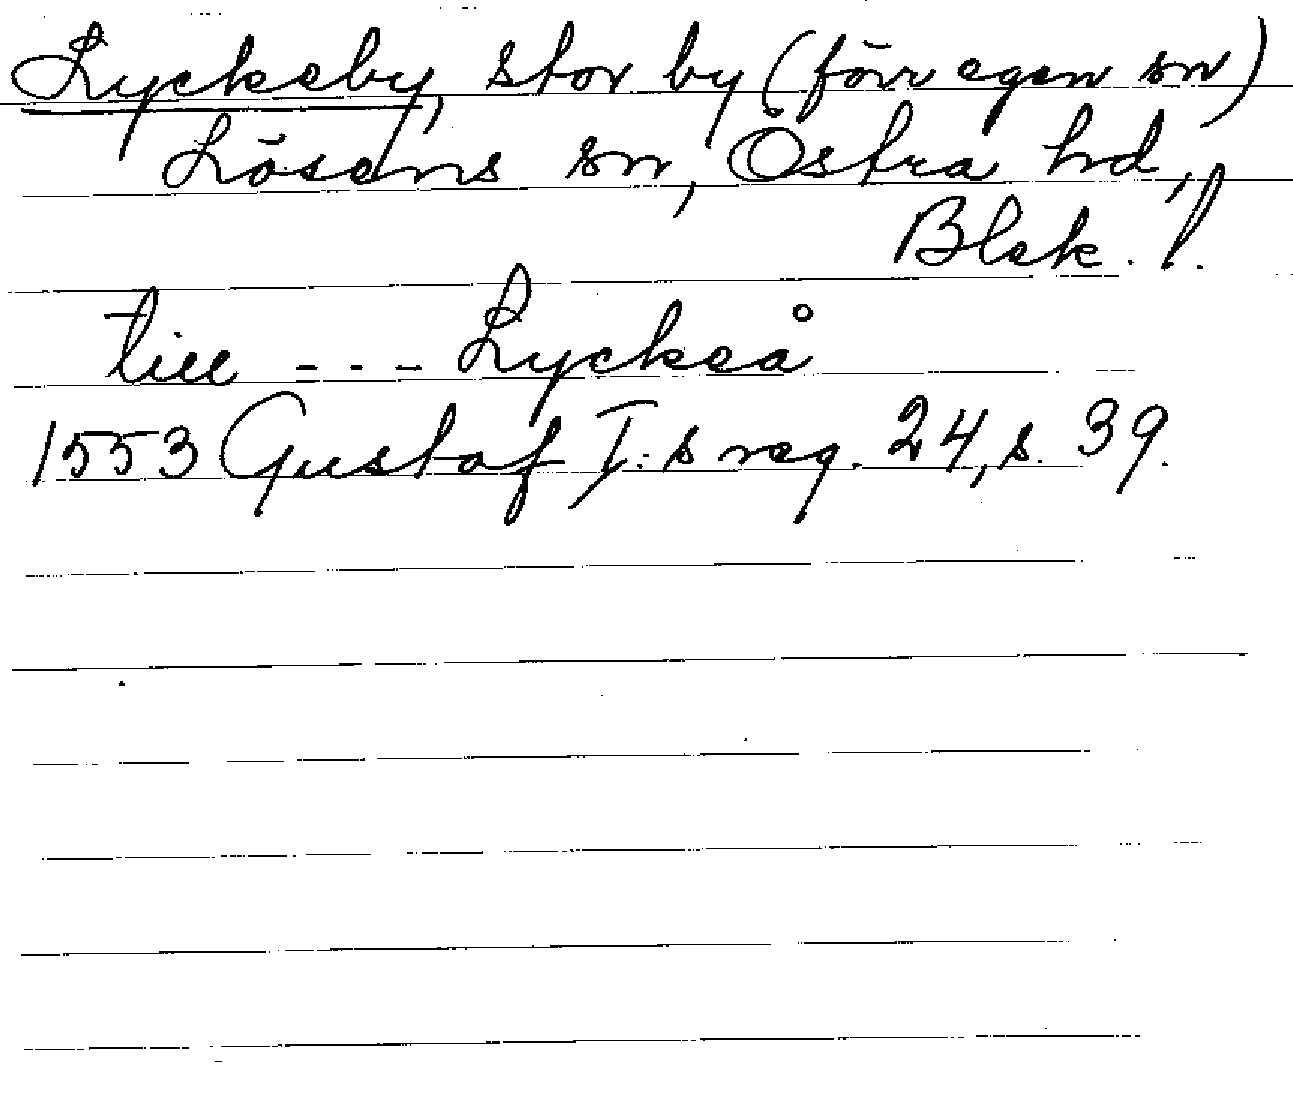 Lyckeby, stor by (förr egen sn)
Lösens sn, Östra hd,
Blek. l.
till - - - Lyckeå
1553 Gustaf I:s reg. 24, s. 39.